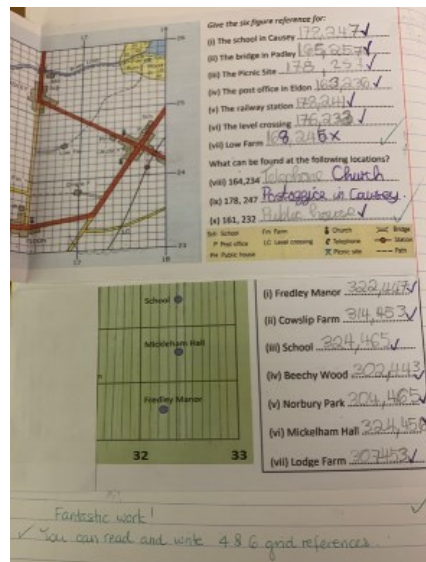 Give the six figure reference for:
(i) The school in Causey 172,247
(ii) The bridge in Padley 165,257
(iii) The Picnic Site 178, 257
(iv) The post office in Eldon 163,236
(v) The railway station 178,241
(vi) The level crossing 176,233
(vii) Low Farm 168,245 x
What can be found at the following locations?
(viii) 164,234 Telephone Church
(ix) 178, 247 Postoffice in Causey
(x) 161, 232 Public house
Sch School Fm Farm Church Bridge
P Post office LC Level crossing Telephone Station
PH Public house Picnic site Path
17
26
25
24
23
17
LC
School
Mickleham Hall
Fredley Manor
32 33
(i) Fredley Manor 322,447
(ii) Cowslip Farm 314,453
(iii) School 324,465
(iv) Beechy Wood 302,443
(v) Norbury Park 304,465
(vi) Mickelham Hall
(vii) Lodge Farm 307453
Fantastic work!
You can read and write 4 & 6 grid references.